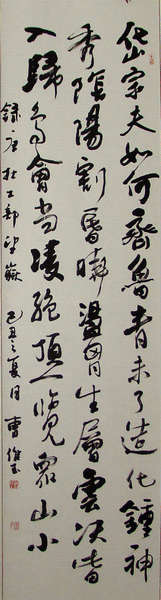 岱宗夫如何齊魯青未了造化鍾神
秀陰陽割昬曉盪胷生層雲決眥
入歸鳥會當凌絕頂一覽眾山小
錄唐杜工部望嶽 己丑之夏月 曹